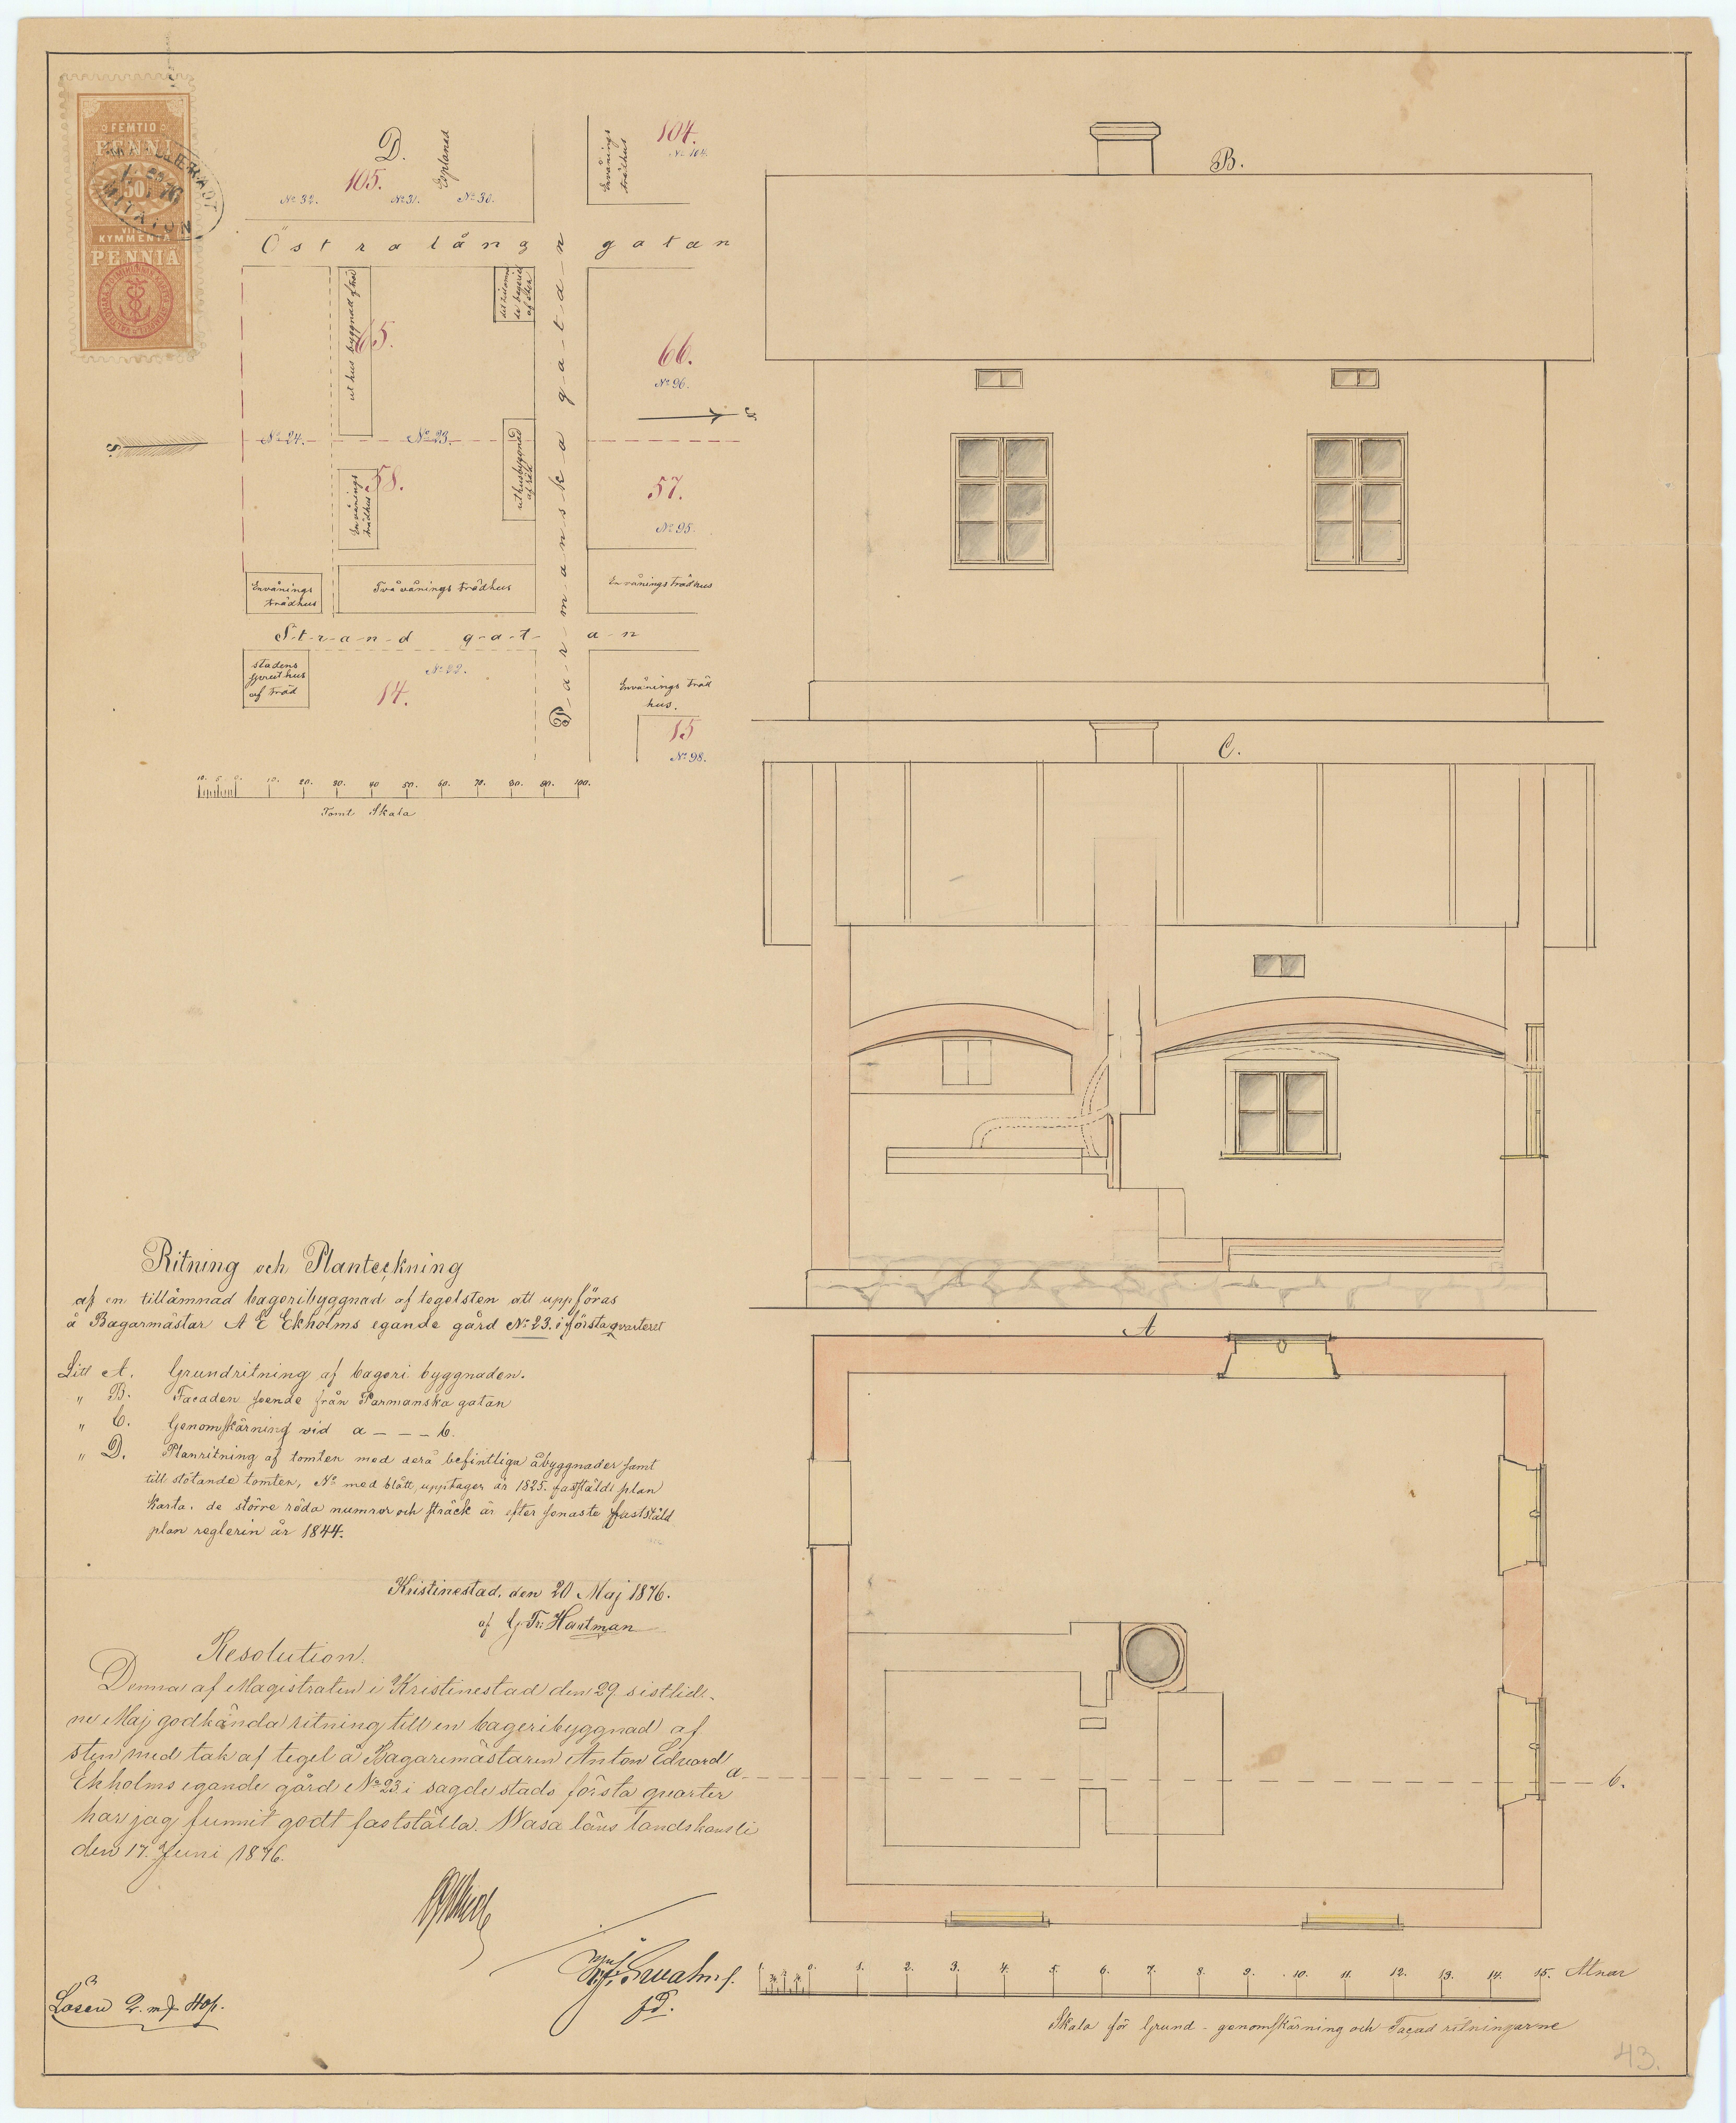 FEMTIO
PENNI
50
KYMMENTÄ
PENNIA
D.
Esplanad
105.
No 32.
No 31.
No 30.
Envånings
trädhus
104.
No 104.
Östra lång gatan
uthus byggnad af träd
65.
till ämnade bageriet af sten
66.
No 96.
No 24.
No 23.
S.
58.
Envånings
trädhus
uthusbyggnad
57.
No 95.
Envånings
trädhus
Två vånings trädhus
Envånings trädhus
Parmanska gatan
Strand gatan
stadens
sprut hus
af träd
No 22.
14.
Envånings träd
hus.
15
No 98.
10. 5. 0. 10. 20. 30. 40 50. 60. 70. 80. 90. 100.
Tomt Skala
B.
C.
A
Ritning och Planteckning
af en tillämnad bageribyggnad af tegelsten att uppföras
å Bagarmästar A E Ekholms egande gård No 23. i första qvarteret
Litt A. Grundritning af bageri byggnaden.
" B. Facaden seende från Parmanska gatan
" C. Genomskärning vid a – – – b.
" D. Planritning af tomten med derå befintliga åbyggnader samt
till stötande tomten, No med blått upptager är 1825. fastställd plan
karta. de större röda numror och sträck är efter senaste fastställd
plan reglerin år 1844.
Kristinestad, den 20 Maj 1876.
af G. Fr: Hartman
Resolution.
Denna af Magistraten i Kristinestad den 29. sistlid-
ne Maj godkända ritning till en bageribyggnad af
sten med tak af tegel å Bagaremästaren Anton Edvard
Ekholms egande gård No 23 i sagde stads första quarter
har jag funnit godt fastställa. Wasa läns landskansli
den 17. Juni 1876.
a
b.
Lösen 2. mf 40p.
0. 1. 2. 3. 4. 5. 6. 7. 8. 9. 10. 11. 12. 13. 14. 15. Alnar
Skala för Grund - genomskärning och Façad ritningarne
43.